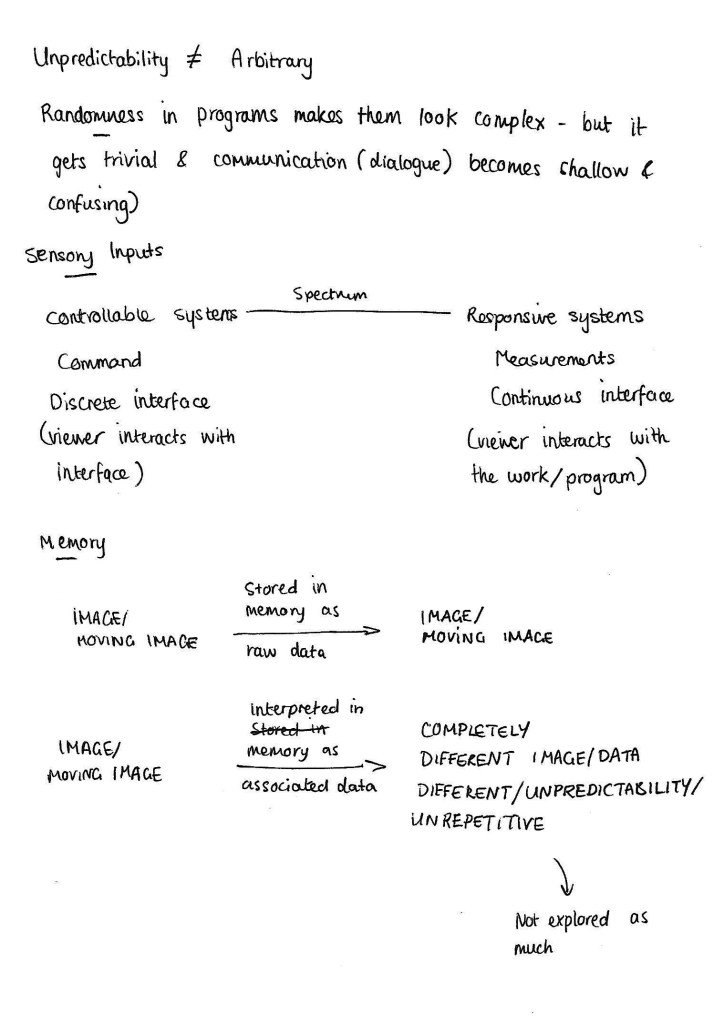 Unpredictability ≠ Arbitrary
Randomness in programs makes them look complex - but it
gets trivial & communication (dialogue) becomes shallow &
confusing)
Sensory Inputs
Spectrum
Controllable systems
Responsive systems
Command
Measurements
Discrete interface
Continuous interface
(viewer interacts with
interface)
(viewer interacts with
the work/program)
Memory
IMAGE/
MOVING IMAGE
Stored in
memory as
raw data
IMAGE/
MOVING IMAGE
IMAGE/
MOVING IMAGE
interpreted in
Stored in
memory as
associated data
COMPLETELY
DIFFERENT IMAGE/DATA
DIFFERENT/UNPREDICTABILITY/
UNREPETITIVE
Not explored as
much